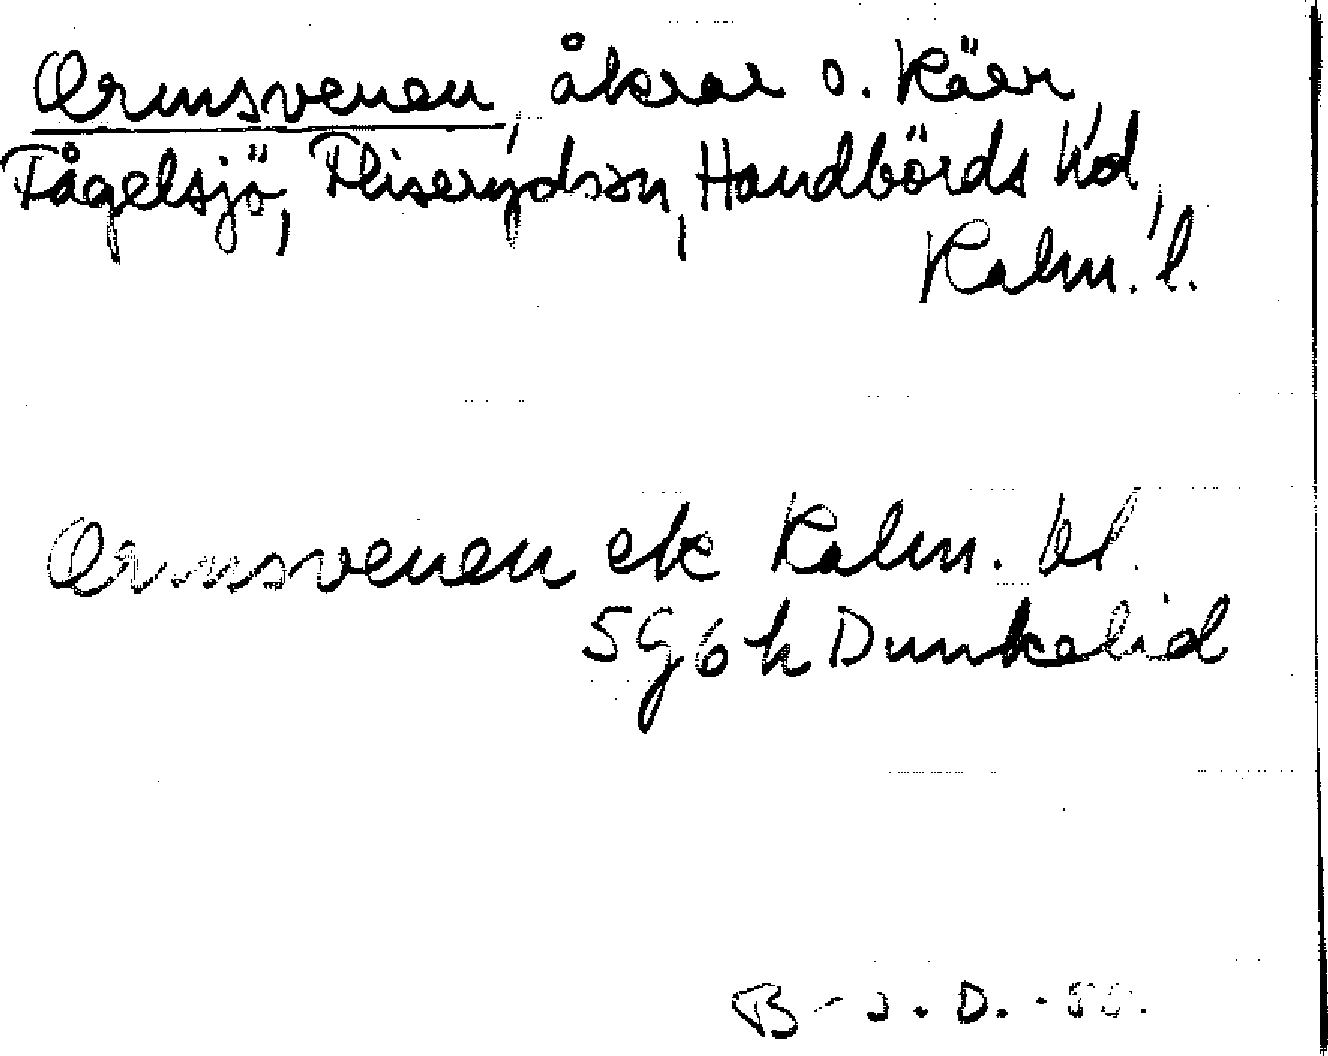 Ormsvenen, åkrar o. kärr,
Fågelsjö, Fliserydssn, Handbörds hd,
Kalm. l.
Ormsvenen ek Kalm. bl.
5G6h Dunkelid
B-J.D.-55.